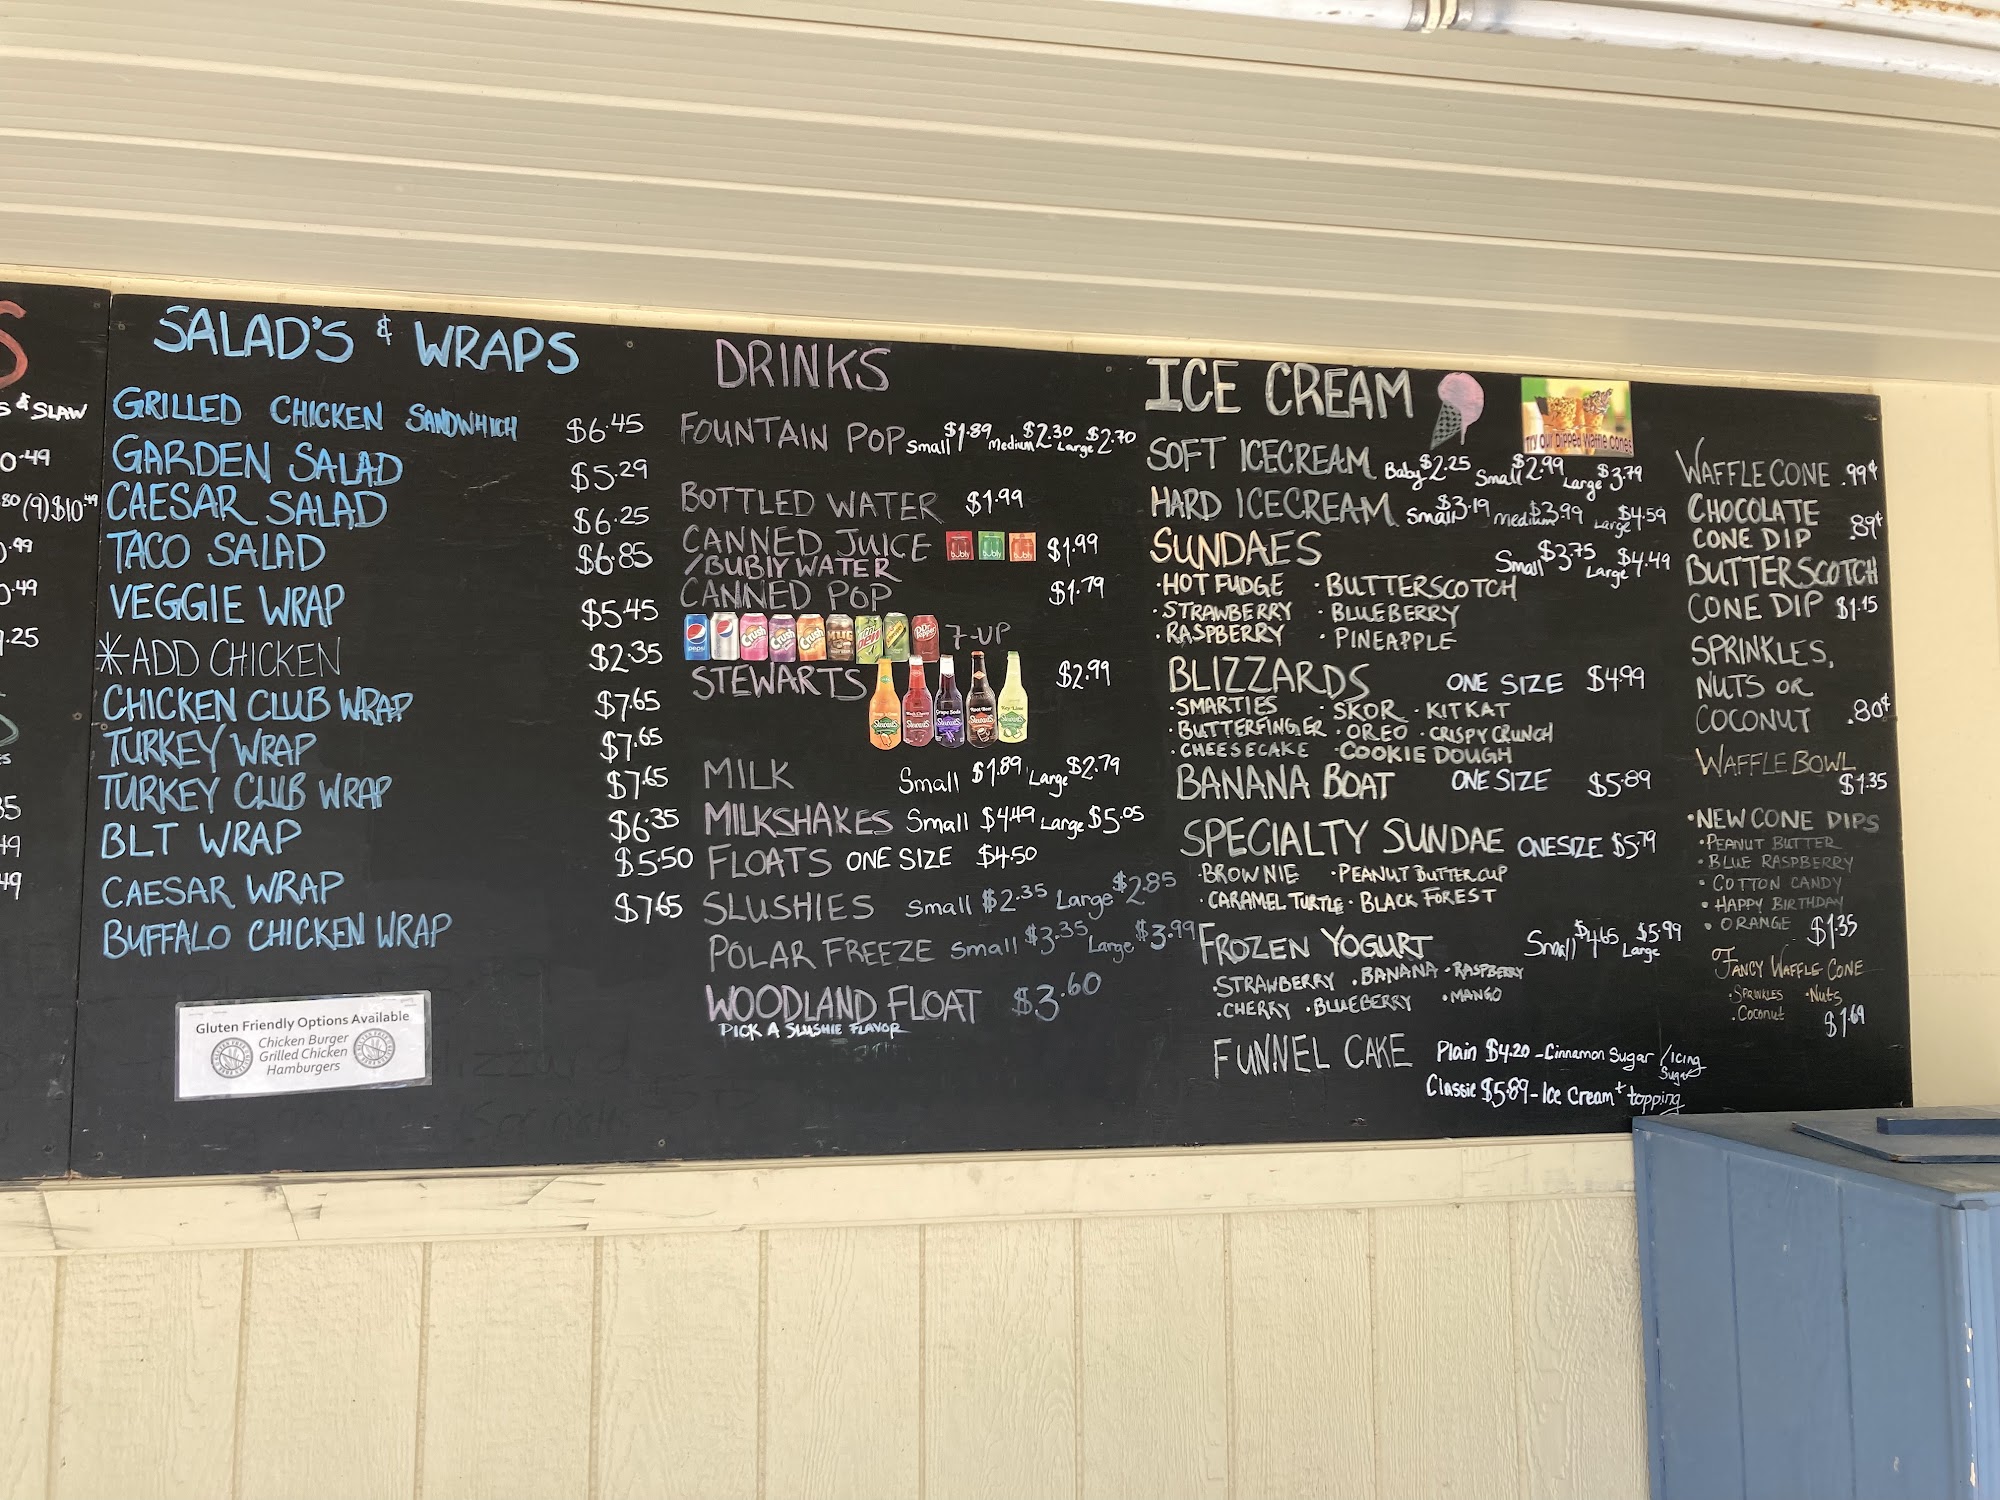 S
S & SLAW
0.49
.80 (9) $10.49
0.99
0.49
9.25
35
49
49
SALAD'S & WRAPS
GRILLED CHICKEN SANDWHICH $6.45
GARDEN SALAD $5.29
CAESAR SALAD $6.25
TACO SALAD $6.85
VEGGIE WRAP $5.45
*ADD CHICKEN $2.35
CHICKEN CLUB WRAP $7.65
TURKEY WRAP $7.65
TURKEY CLUB WRAP $7.65
BLT WRAP $6.35
CAESAR WRAP $5.50
BUFFALO CHICKEN WRAP $7.65
Gluten Friendly Options Available
Chicken Burger
Grilled Chicken
Hamburgers
DRINKS
FOUNTAIN POP Small $1.89 Medium $2.30 Large $2.70
BOTTLED WATER $1.99
CANNED JUICE bubly bubly bubly $1.99
/BUBLY WATER
CANNED POP $1.79
pepsi Crush Crush Crush MUG Dr Pepper 7-UP
STEWARTS $2.99
Stewart's Stewart's Stewart's Stewart's Stewart's
MILK Small $1.89 Large $2.79
MILKSHAKES Small $4.49 Large $5.05
FLOATS ONE SIZE $4.50
SLUSHIES Small $2.35 Large $2.85
POLAR FREEZE Small $3.35 Large $3.99
WOODLAND FLOAT $3.60
PICK A SLUSHIE FLAVOR
ICE CREAM
Try our Dipped Waffle Cones
SOFT ICECREAM Baby $2.25 Small $2.99 Large $3.79
HARD ICECREAM Small $3.19 Medium $3.99 Large $4.59
SUNDAES Small $3.75 Large $4.49
· HOT FUDGE · BUTTERSCOTCH
· STRAWBERRY · BLUEBERRY
· RASPBERRY · PINEAPPLE
BLIZZARDS ONE SIZE $4.99
· SMARTIES · SKOR · KITKAT
· BUTTERFINGER · OREO · CRISPY CRUNCH
· CHEESECAKE · COOKIE DOUGH
BANANA BOAT ONE SIZE $5.89
SPECIALTY SUNDAE ONE SIZE $5.79
· BROWNIE · PEANUT BUTTER CUP
· CARAMEL TURTLE · BLACK FOREST
FROZEN YOGURT Small $4.65 Large $5.99
· STRAWBERRY · BANANA · RASPBERRY
· CHERRY · BLUEBERRY · MANGO
FUNNEL CAKE Plain $4.20 - Cinnamon Sugar / Icing Sugar
Classic $5.89 - Ice Cream + topping
WAFFLE CONE .99¢
CHOCOLATE
CONE DIP .89¢
BUTTERSCOTCH
CONE DIP $1.15
SPRINKLES,
NUTS OR
COCONUT .80¢
WAFFLE BOWL
$1.35
· NEW CONE DIPS
· PEANUT BUTTER
· BLUE RASPBERRY
· COTTON CANDY
· HAPPY BIRTHDAY
· ORANGE $1.35
FANCY WAFFLE CONE
· SPRINKLES · Nuts
· Coconut $1.69